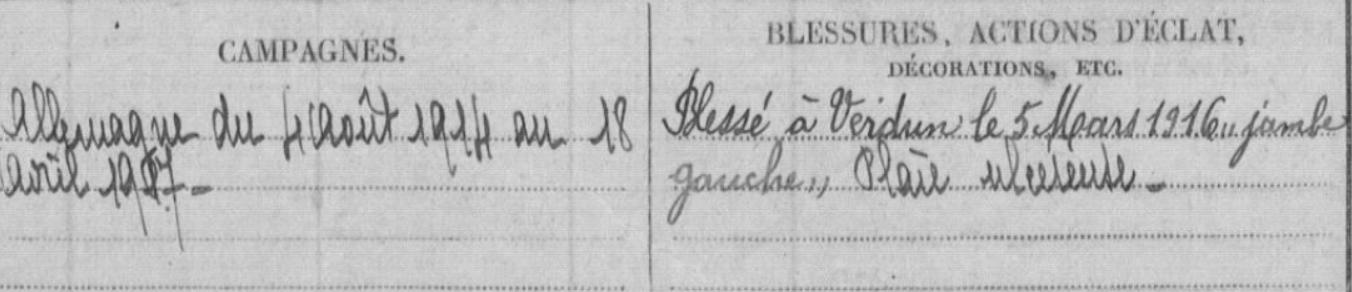 CAMPAGNES.
Allemagne du 4 Août 1914 au 18
avril 1917 -
BLESSURES, ACTIONS D'ÉCLAT,
DÉCORATIONS, ETC.
Blessé à Verdun le 5 Mars 1916 „ jambe
gauche „ Plaie ulcéreuse -